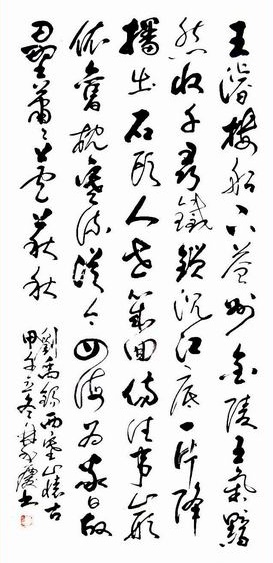 王濬樓船下益州金陵王氣黯
然收千尋鐵鎖沉江底一片降
幡出石頭人世幾回傷往事山形
依舊枕寒流從今四海為家日故
壘蕭蕭蘆荻秋
劉禹錫西塞山懷古
甲午立冬書